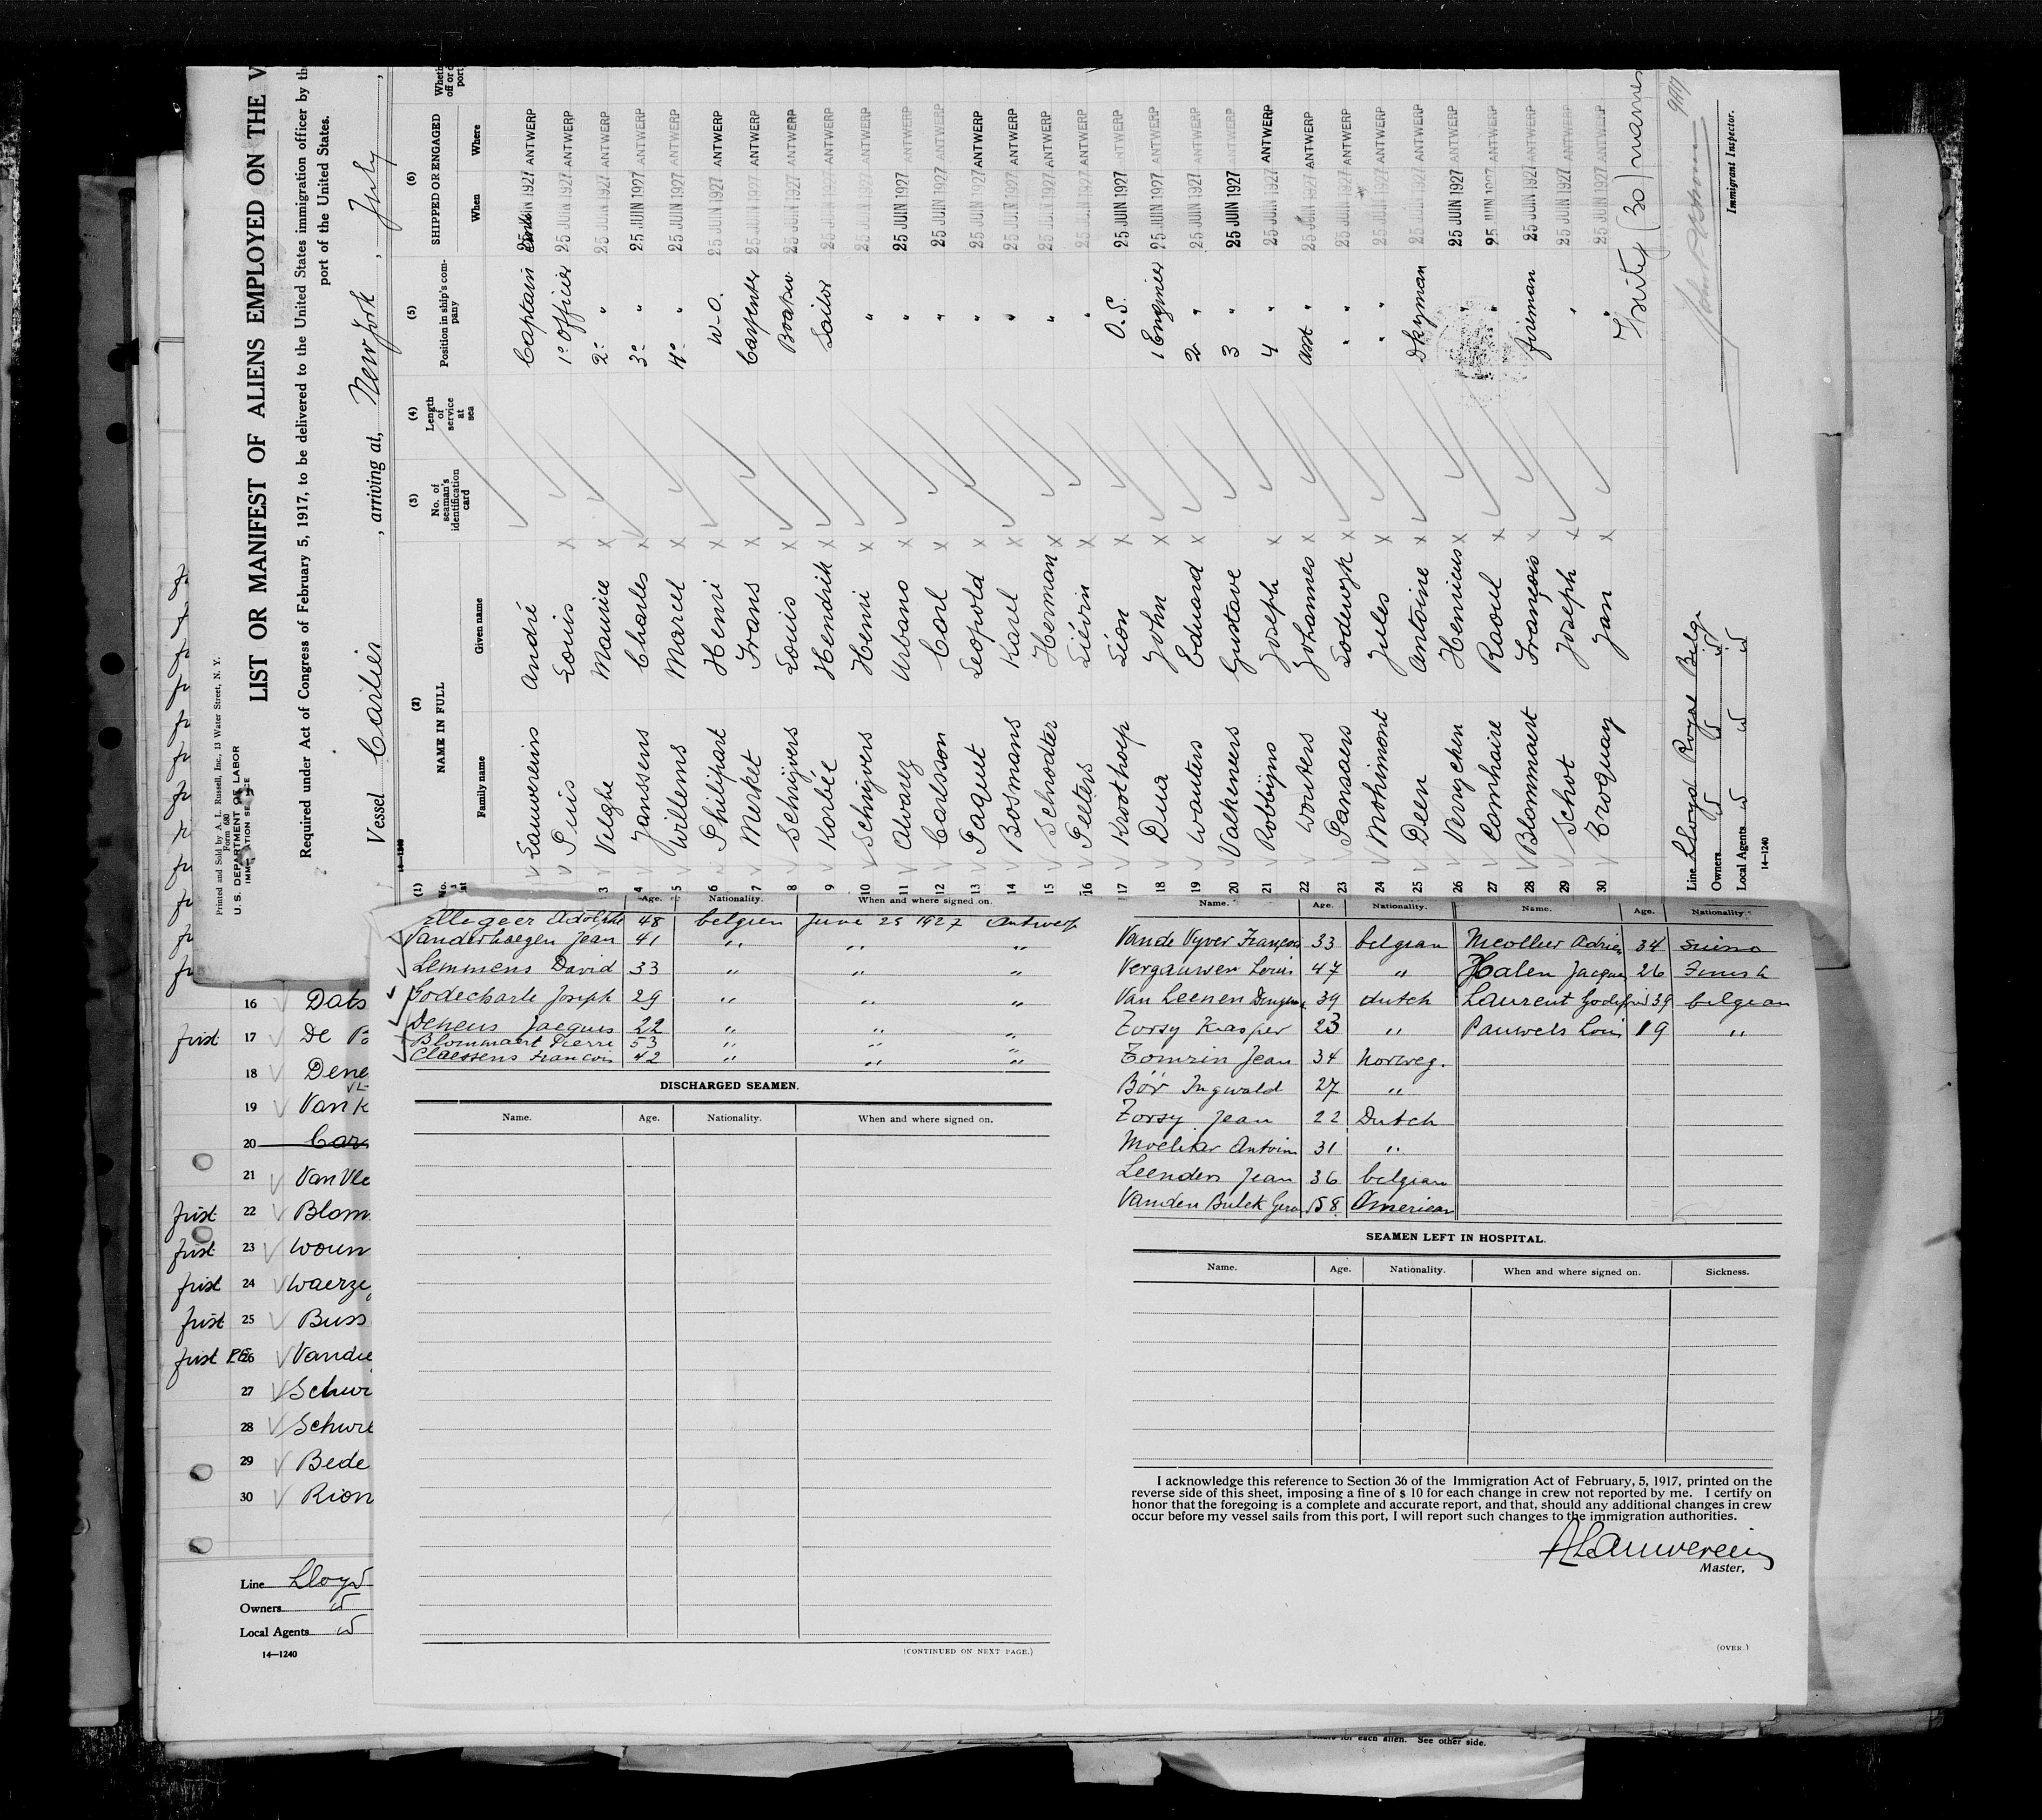 Printed and Sold by A. L. Russell, Inc., 13 Water Street, N. Y.
Form 680
U. S. DEPARTMENT OF LABOR
LIST OR MANIFEST OF ALIENS EMPLOYED ON THE V
Required under Act of Congress of February 5, 1917, to be delivered to the United States immigration officer by the
port of the United States.
Vessel Carlier, arriving at, New York, July
14—1240
(1) (2) (3) (4) (5) (6)
NAME IN FULL
No. of seaman's identification card
Length of service at sea
Position in ship's company
SHIPPED OR ENGAGED
Family name Given name When Where
Lauwereins André Captain 25 JUIN 1927 ANTWERP
Piris Louis 1° Officier 25 JUIN 1927 ANTWERP
3 Vilghe Maurice x 2° " 25 JUIN 1927 ANTWERP
4 Janssens Charles x 3° " 25 JUIN 1927 ANTWERP
5 Willems Marcel x 4° " 25 JUIN 1927 ANTWERP
6 Philipart Henri x W-O. 25 JUIN 1927 ANTWERP
7 Merket Frans x Carpenter 25 JUIN 1927 ANTWERP
8 Schrijvers Louis x Boatsw. 25 JUIN 1927 ANTWERP
9 Korbée Hendrik x Sailor 25 JUIN 1927 ANTWERP
10 Schrijvers Henri x " 25 JUIN 1927 ANTWERP
11 Alvarez Urbano x " 25 JUIN 1927 ANTWERP
12 Carlsson Carl x " 25 JUIN 1927 ANTWERP
13 Paquet Leopold x " 25 JUIN 1927 ANTWERP
14 Bosmans Karel x " 25 JUIN 1927 ANTWERP
15 Schrodter Herman x " 25 JUIN 1927 ANTWERP
16 Peeters Liévin x " 25 JUIN 1927 ANTWERP
17 Kroothoep Léon x O.S. 25 JUIN 1927 ANTWERP
18 Dua John x 1 Enginier 25 JUIN 1927 ANTWERP
19 Wauters Eduard x 2 " 25 JUIN 1927 ANTWERP
20 Valkeneers Gustave 3 " 25 JUIN 1927 ANTWERP
21 Robbijns Joseph x 4 " 25 JUIN 1927 ANTWERP
22 Wouters Johannes x asst " 25 JUIN 1927 ANTWERP
23 Pansaers Lodewyk x " " 25 JUIN 1927 ANTWERP
24 Mohimont Jules x " " 25 JUIN 1927 ANTWERP
25 Deen Antoine x Dkyman 25 JUIN 1927 ANTWERP
26 Verrycken Henricus x " 25 JUIN 1927 ANTWERP
27 Comhaire Raoul x " 25 JUIN 1927 ANTWERP
28 Blommaert François x fireman 25 JUIN 1927 ANTWERP
29 Schot Joseph x " 25 JUIN 1927 ANTWERP
30 Broquay Jan x " 25 JUIN 1927 ANTWERP
(30) names
Line Lloyd Royal Belge
Owners
Local Agents
14—1240
Immigrant Inspector.
Age. Nationality. When and where signed on.
Ellegeer Adolphe 48 belgien June 25 1927 Antwerp
Vanderhaegen Jean 41 " " "
Lemmens David 33 " " "
Godecharle Joseph 29 " " "
Deneus Jacques 22 " " "
Blommaert Pierre 53 " " "
Claessens Francois 42 " " "
DISCHARGED SEAMEN.
Name. Age. Nationality. When and where signed on.
(CONTINUED ON NEXT PAGE.)
Name. Age. Nationality. Name. Age. Nationality.
Van de Vyver François 33 belgian Adrien 34
Vergauwen Louis 47 " Halen Jacques 26
Van Leenen 39 dutch Laurent 39 belgian
Torsy Kasper 23 " Pauwels Louis 19 "
Tomrin Jean 34 Norweg.
Bör Ingwald 27 "
Torsy Jean 22 Dutch
Antoine 31 "
Leenders Jean 36 belgian
Vanden Bulck 58 American
SEAMEN LEFT IN HOSPITAL.
Name. Age. Nationality. When and where signed on. Sickness.
I acknowledge this reference to Section 36 of the Immigration Act of February, 5, 1917, printed on the
reverse side of this sheet, imposing a fine of $ 10 for each change in crew not reported by me. I certify on
honor that the foregoing is a complete and accurate report, and that, should any additional changes in crew
occur before my vessel sails from this port, I will report such changes to the immigration authorities.
ALauwereins
Master,
(OVER.)
16 Dats
first 17 De B
18 Dene
19 Van K
20 Car
21 Van Vle
first 22 Blom
first 23 Woun
first 24 Waerze
first 25 Buss
first 26 Vande
27 Schwr
28 Schwre
29 Bede
30 Rion
Line Lloyd
Owners
Local Agents
14—1240
for each alien. See other side.